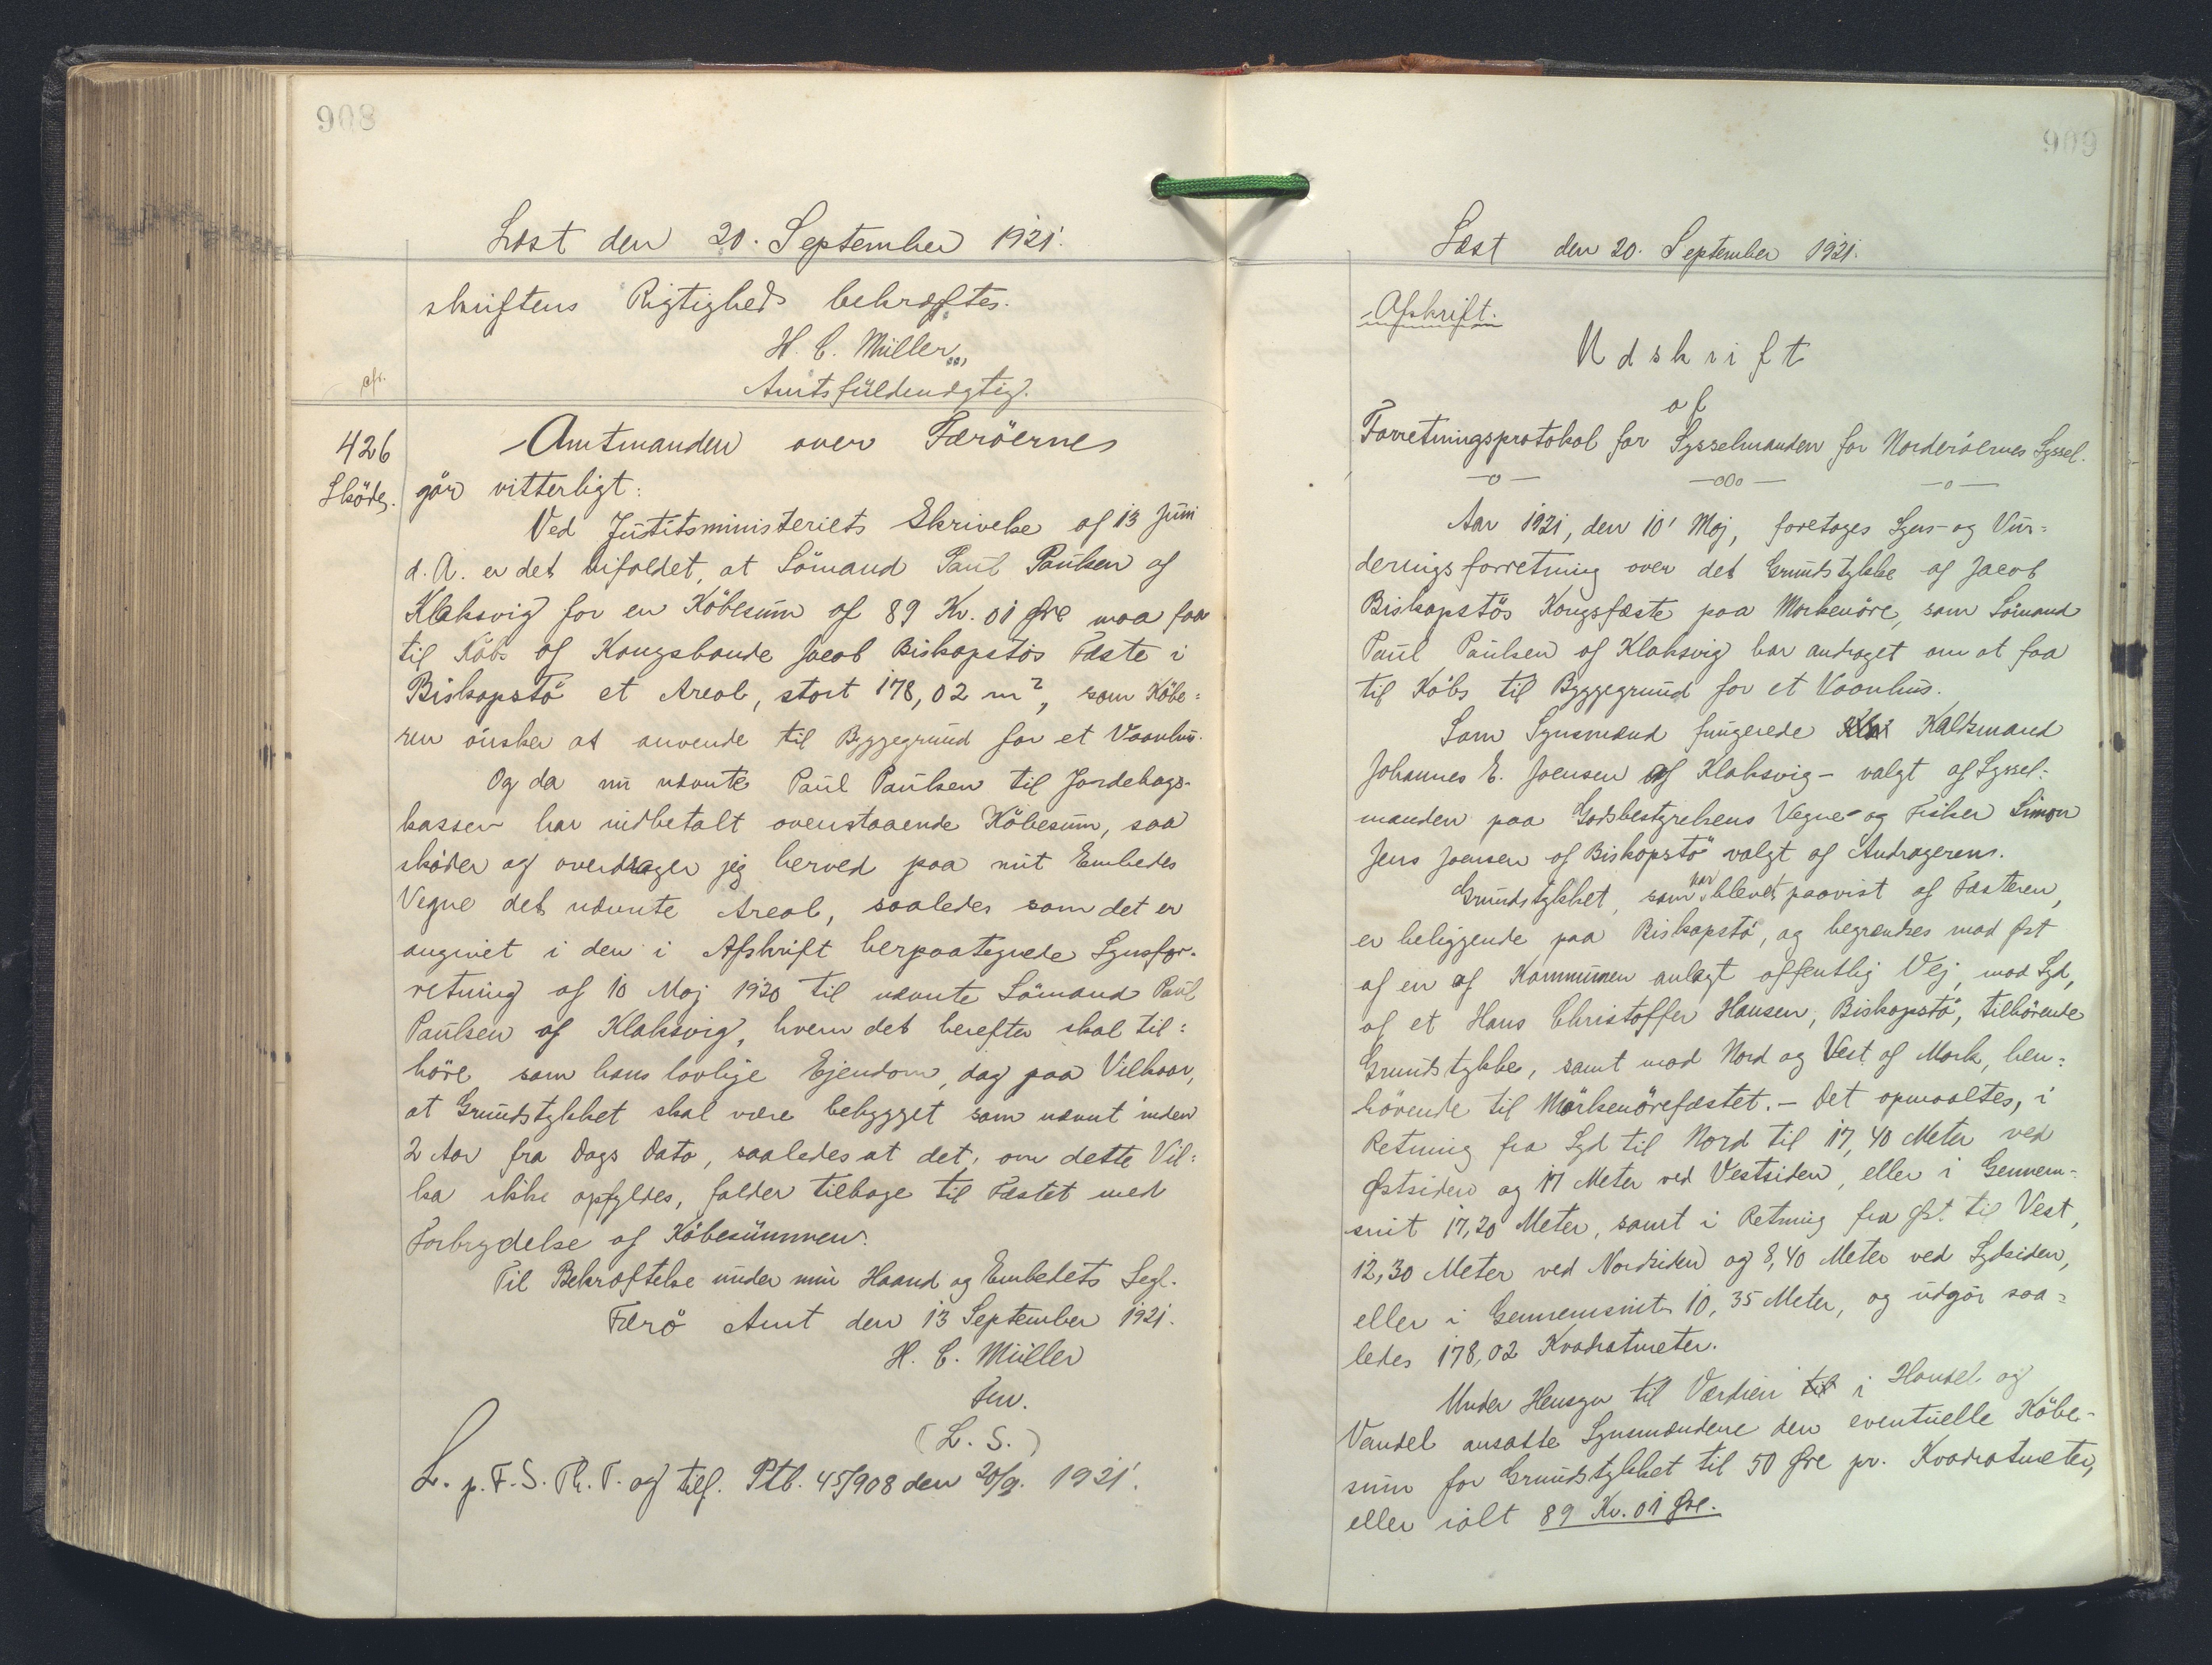 908
Læst den 20. September 1921.
skriftens Rigtighed bekræftes.
H. C. Müller
Amtsfuldmægtig.
afs.
426
Skøde.
Amtmanden over Færöerne
gör vitterligt:
Ved Justitsministeriets Skrivelse af 13 Juni
d. A. er det bifaldet, at Sömand Paul Paulsen af
Klaksvig for en Köbesum af 89 Kr. 01 Øre maa faa
til Köbs af Kongsbonde Jacob Biskopstös Fæste i
Biskopstö et Areal, stort 178,02 m², som Köbe=
ren önsker at anvende til Byggegrund for et Vaanhus.
Og da nu nævnte Paul Paulsen til Jordebogs-
kassen har indbetalt ovenstaaende Köbesum, saa
sköder og overdrager jeg herved paa mit Embedes
Vegne det nævnte Areal, saaledes som det er
angivet i den i Afskrift herpaategnede Synsfor-
retning af 10 Maj 1920 til nævnte Sömand Paul
Paulsen af Klaksvig, hvem det herefter skal til=
höre som hans lovlige Ejendom, dog paa Vilkaar,
at Grundstykket skal være bebygget som nævnt inden
2 Aar fra Dags Dato, saaledes at det, om dette Vil=
kaar ikke opfyldes, falder tilbage til Fæstet med
Forbrydelse af Köbesummen.
Til Bekræftelse under min Haand og Embedets Segl.
Færö Amt den 13 September 1921.
H. C. Müller
fm.
(L. S.)
L. p. F. S. Th. T. og tilf. Ptb. 45/908 den 20/9. 1921.
909
Læst den 20. September 1921.
Afskrift.
Udskrift
af
Forretningsprotokol for Sysselmanden for Norderöernes Syssel.
—o— —000— —o—
Aar 1921, den 10' Maj, foretoges Syns- og Vur=
deringsforretning over det Grundstykke af Jacob
Biskopstös Kongsfæste paa Mærkenöre, som Sömand
Paul Paulsen af Klaksvig har andraget om at faa
til Köbs til Byggegrund for et Vaanhus.
Som Synsmænd fungerede Kaldsmand
Johannes E. Joensen af Klaksvig - valgt af Syssel=
manden paa Godsbestyrelsens Vegne - og Fisker Simon
Jens Joensen af Biskopstö valgt af Andrageren.
Grundstykket, som har blevet paavist af Fæsteren,
er beliggende paa Biskopstö, og begrændses mod Øst
af en af Kommunen anlagt offentlig Vej, mod Syd,
af et Hans Christoffer Hansen, Biskopstö, tilhörende
Grundstykke, samt mod Nord og Vest af Mark, hen=
hörende til Mörkenörefæstet. - Det opmaaltes, i
Retning fra Syd til Nord til 17,40 Meter ved
Østsiden og 17 Meter ved Vestsiden, eller i Gennem-
snit 17,20 Meter, samt i Retning fra Øst til Vest,
12,30 Meter ved Nordsiden og 8,40 Meter ved Sydsiden,
eller i Gennemsnit 10,35 Meter, og udgör saa=
ledes 178,02 Kvadratmeter.
Under Hensyn til Værdien til i Handel og
Vandel ansatte Synsmændene den eventuelle Köbe-
sum for Grundstykket til 50 Øre pr. Kvadratmeter,
eller ialt 89 Kr. 01 Øre.